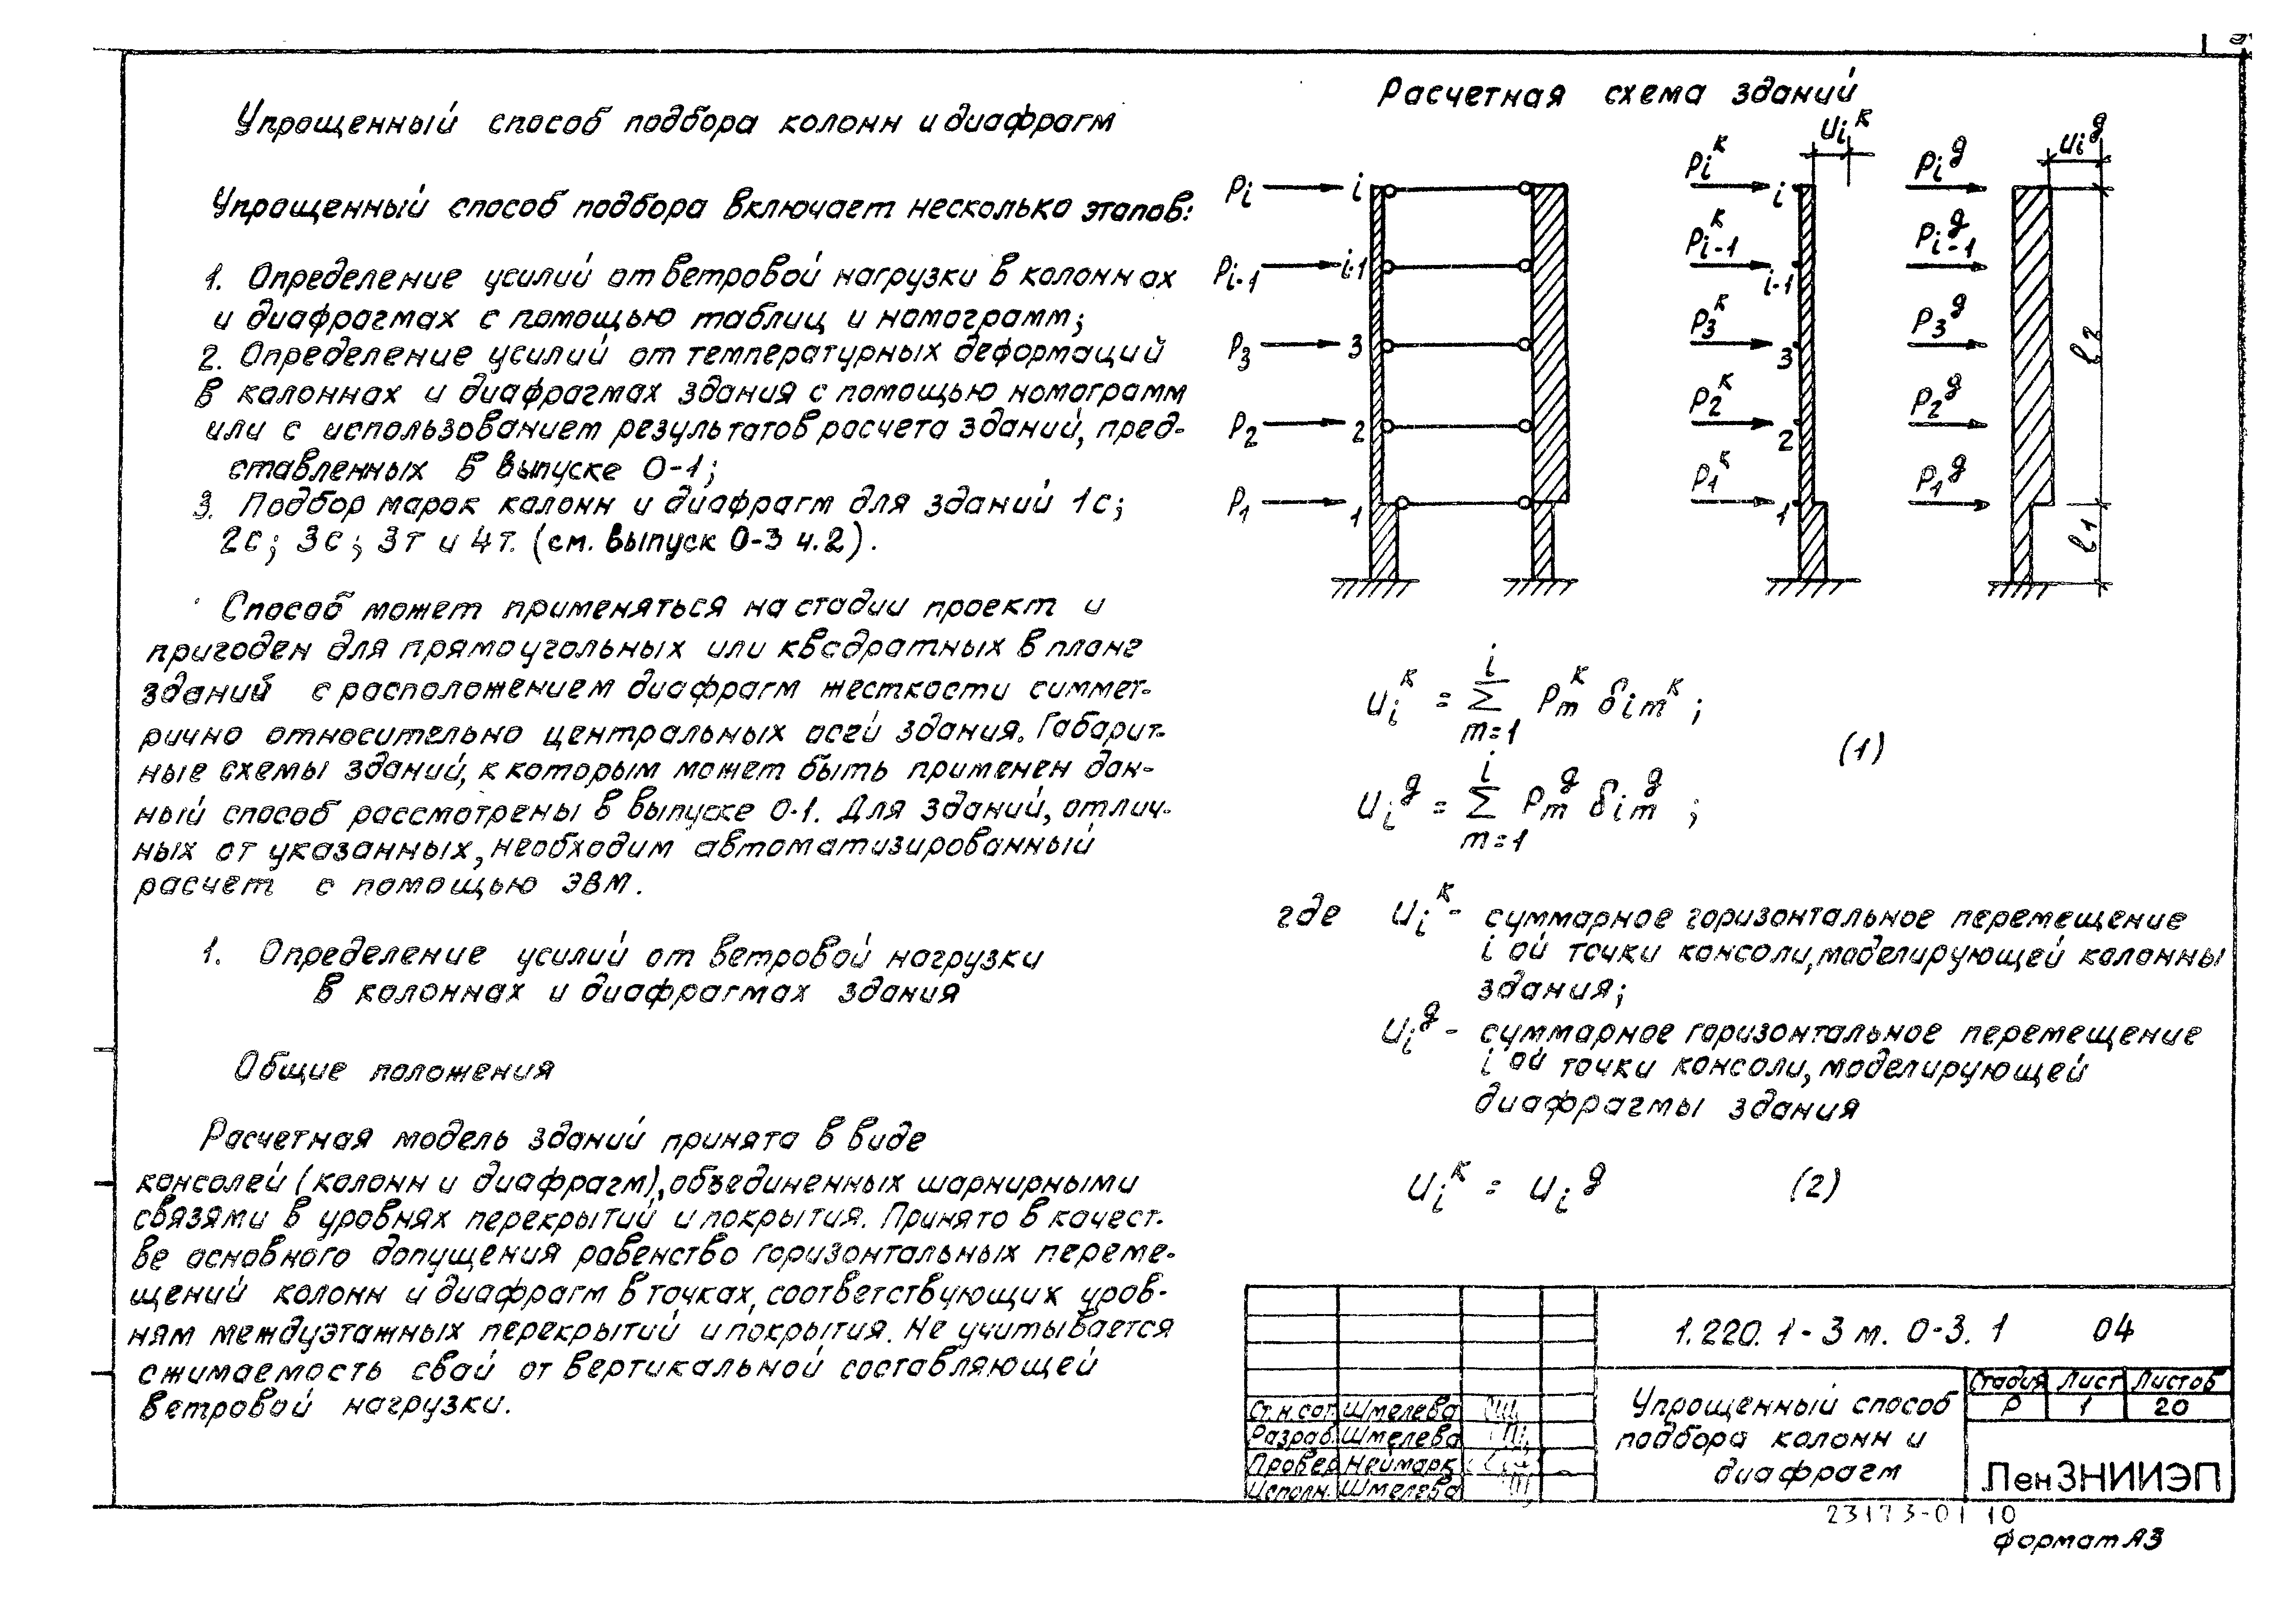 Упрощенный способ подбора колонн и диафрагм
Упрощенный способ подбора включает несколько этапов:
1. Определение усилий от ветровой нагрузки в колоннах
и диафрагмах с помощью таблиц и номограмм;
2. Определение усилий от температурных деформаций
в колоннах и диафрагмах здания с помощью номограмм
или с использованием результатов расчета зданий, пред-
ставленных в выпуске 0-1;
3. Подбор марок колонн и диафрагм для зданий 1с;
2с; 3с; 3т и 4т. (см. выпуск 0-3 ч.2).
Способ может применяться на стадии проект и
пригоден для прямоугольных или квадратных в плане
зданий с расположением диафрагм жесткости симмет-
рично относительно центральных осей здания. Габарит-
ные схемы зданий, к которым может быть применен дан-
ный способ рассмотрены в выпуске 0-1. Для зданий, отлич-
ных от указанных, необходим автоматизированный
расчет с помощью ЭВМ.
1. Определение усилий от ветровой нагрузки
в колоннах и диафрагмах здания
Общие положения
Расчетная модель зданий принята в виде
консолей (колонн и диафрагм), объединенных шарнирными
связями в уровнях перекрытий и покрытия. Принято в качест-
ве основного допущения равенство горизонтальных переме-
щений колонн и диафрагм в точках, соответствующих уров-
ням междуэтажных перекрытий и покрытия. Не учитывается
сжимаемость свай от вертикальной составляющей
ветровой нагрузки.
Расчетная схема зданий
Pi i Pi^к i ui^к Pi^д ui^д
Pi-1 i-1 Pi-1^к i-1 Pi-1^д
P3 3 P3^к 3 P3^д l2
P2 2 P2^к 2 P2^д
P1 1 P1^к 1 P1^д l1
ui^к = Σ(m=1, i) Pm^к δim^к;
(1)
ui^д = Σ(m=1, i) Pm^д δim^д;
где ui^к - суммарное горизонтальное перемещение
i ой точки консоли, моделирующей колонны
здания;
ui^д - суммарное горизонтальное перемещение
i ой точки консоли, моделирующей
диафрагмы здания
ui^к = ui^д (2)
1.220.1-3м.0-3.1 04
Упрощенный способ
подбора колонн и
диафрагм
Стадия Лист Листов
Р 1 20
ЛенЗНИИЭП
Ст.н.сот. Шмелева
Разраб. Шмелева
Провер Неймарк
Исполн. Шмелева
23173-01 10
формат А3